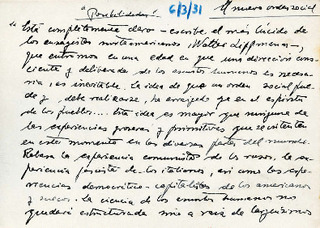 "Posibilidades". 6/3/31 El nuevo orden social
"Está completamente claro - escribe el más lúcido de
los ensayistas norteamericanos, Walter Lippmann -,
que entramos en una edad en que una dirección cons-
ciente y deliberada de los asuntos humanos es necesa-
ria, es inevitable. La idea de que un orden social pue-
de y debe realizarse, ha arraigado ya en el espíritu
de los pueblos... Esta idea es mayor que ninguna de
las experiencias groseras y primitivas que se intentan
en este momento en las diversas partes del mundo.
Rebasa la experiencia comunista de los rusos, la ex-
periencia fascista de los italianos, así como las expe-
riencias democrático-capitalistas de los americanos
y suecos. La ciencia de los asuntos humanos no
quedará estructurada sino a raíz de